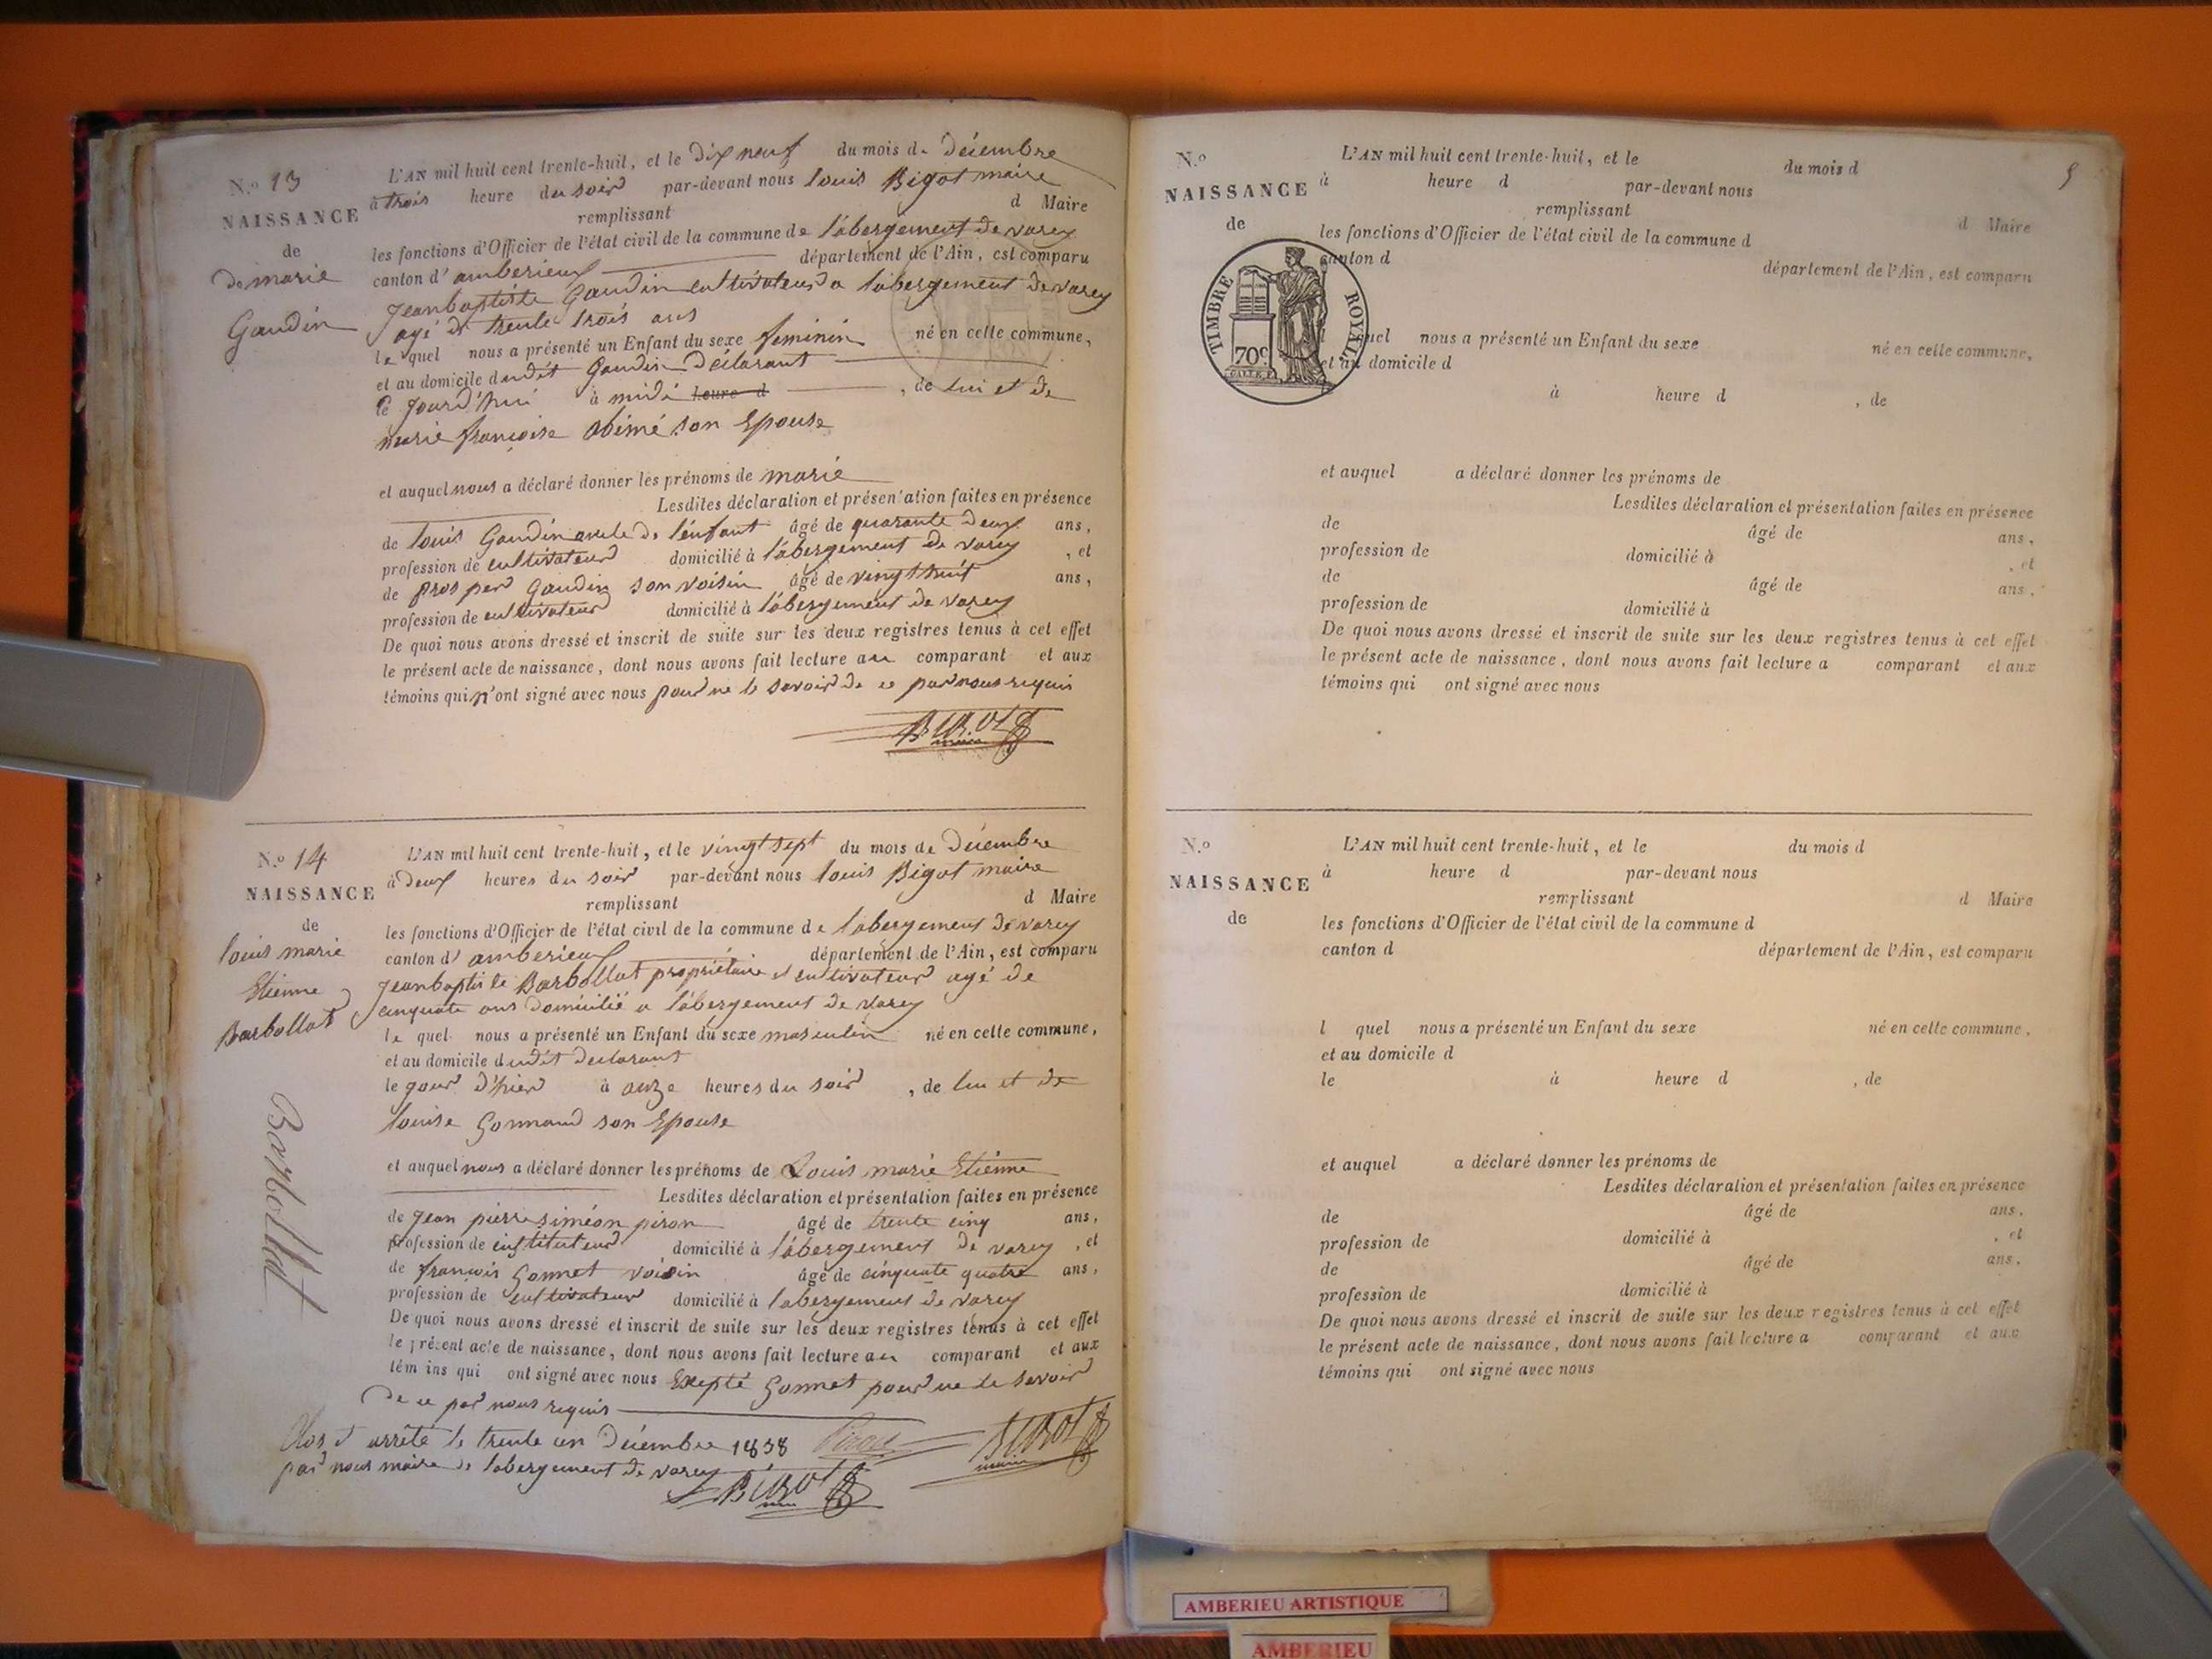 N.o 13
NAISSANCE
de
de marie
Gaudin
L'AN mil huit cent trente-huit, et le dix neuf du mois de décembre
à trois heure du soir par-devant nous louis Bigot maire
remplissant d Maire
les fonctions d'Officier de l'état civil de la commune de l'abergement de varey
canton d' amberieux département de l'Ain, est comparu
Jean baptiste Gaudin cultivateur a l'abergement de varey
agé de trente trois ans
le quel nous a présenté un Enfant du sexe feminin né en cette commune,
et au domicile dudit Gaudin déclarant
le jourd'hui à midi heure d , de lui et de
marie françoise abimé son Epouse
et auquel nous a déclaré donner les prénoms de marie
Lesdites déclaration et présentation faites en présence
de louis Gaudin oncle de l'enfant âgé de quarante deux ans,
profession de cultivateur domicilié à l'abergement de varey , et
de prosper Gaudin son voisin âgé de vingt huit ans,
profession de cultivateur domicilié à l'abergement de varey
De quoi nous avons dressé et inscrit de suite sur les deux registres tenus à cet effet
le présent acte de naissance, dont nous avons fait lecture au comparant et aux
témoins qui n'ont signé avec nous pour ne le savoir de ce par nous requis
BIGOT
maire
N.o 14
NAISSANCE
de
louis marie
Etienne
Barbollat
Barbollat
L'AN mil huit cent trente-huit, et le vingt sept du mois de Décembre
à deux heures du soir par-devant nous louis Bigot maire
remplissant d Maire
les fonctions d'Officier de l'état civil de la commune de l'abergement de varey
canton d' amberieux département de l'Ain, est comparu
Jean baptiste Barbollat propriétaire et cultivateur agé de
cinquate ans domicilié a l'abergement de varey
le quel nous a présenté un Enfant du sexe masculin né en cette commune,
et au domicile dudit declarant
le jour d'hier à onze heures du soir , de lui et de
louise Gonnand son Epouse
et auquel nous a déclaré donner les prénoms de Louis marie Etiénne
Lesdites déclaration et présentation faites en présence
de Jean pierre siméon piron âgé de trente cinq ans,
profession de instituteur domicilié à l'abergement de varey , et
de francois Gonnet voisin âgé de cinquate quatre ans,
profession de cultivateur domicilié à l'abergement de varey
De quoi nous avons dressé et inscrit de suite sur les deux registres tenus à cet effet
le présent acte de naissance, dont nous avons fait lecture au comparant et aux
témoins qui ont signé avec nous Exepté Gonnet pour ne le savoir
de ce par nous requis
Clos et arrêté le trente un Décembre 1838 Piron BIGOT
par nous maire de l'abergement de varey maire
BIGOT
5
N.o
NAISSANCE
de
TIMBRE ROYAL
70c
L'AN mil huit cent trente-huit, et le du mois d
à heure d par-devant nous
remplissant d Maire
les fonctions d'Officier de l'état civil de la commune d
canton d département de l'Ain, est comparu
l quel nous a présenté un Enfant du sexe né en cette commune,
et au domicile d
à heure d , de
et auquel a déclaré donner les prénoms de
Lesdites déclaration et présentation faites en présence
de âgé de ans,
profession de domicilié à , et
de âgé de ans,
profession de domicilié à
De quoi nous avons dressé et inscrit de suite sur les deux registres tenus à cet effet
le présent acte de naissance, dont nous avons fait lecture a comparant et aux
témoins qui ont signé avec nous
N.o
NAISSANCE
de
L'AN mil huit cent trente-huit, et le du mois d
à heure d par-devant nous
remplissant d Maire
les fonctions d'Officier de l'état civil de la commune d
canton d département de l'Ain, est comparu
l quel nous a présenté un Enfant du sexe né en cette commune,
et au domicile d
le à heure d , de
et auquel a déclaré donner les prénoms de
Lesdites déclaration et présentation faites en présence
de âgé de ans,
profession de domicilié à , et
de âgé de ans,
profession de domicilié à
De quoi nous avons dressé et inscrit de suite sur les deux registres tenus à cet effet
le présent acte de naissance, dont nous avons fait lecture a comparant et aux
témoins qui ont signé avec nous
AMBERIEU ARTISTIQUE
AMBERIEU